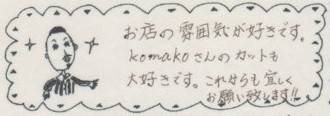 お店の雰囲気が好きです。
komakoさんのカットも
大好きです。これからも宜しく
お願い致します!!